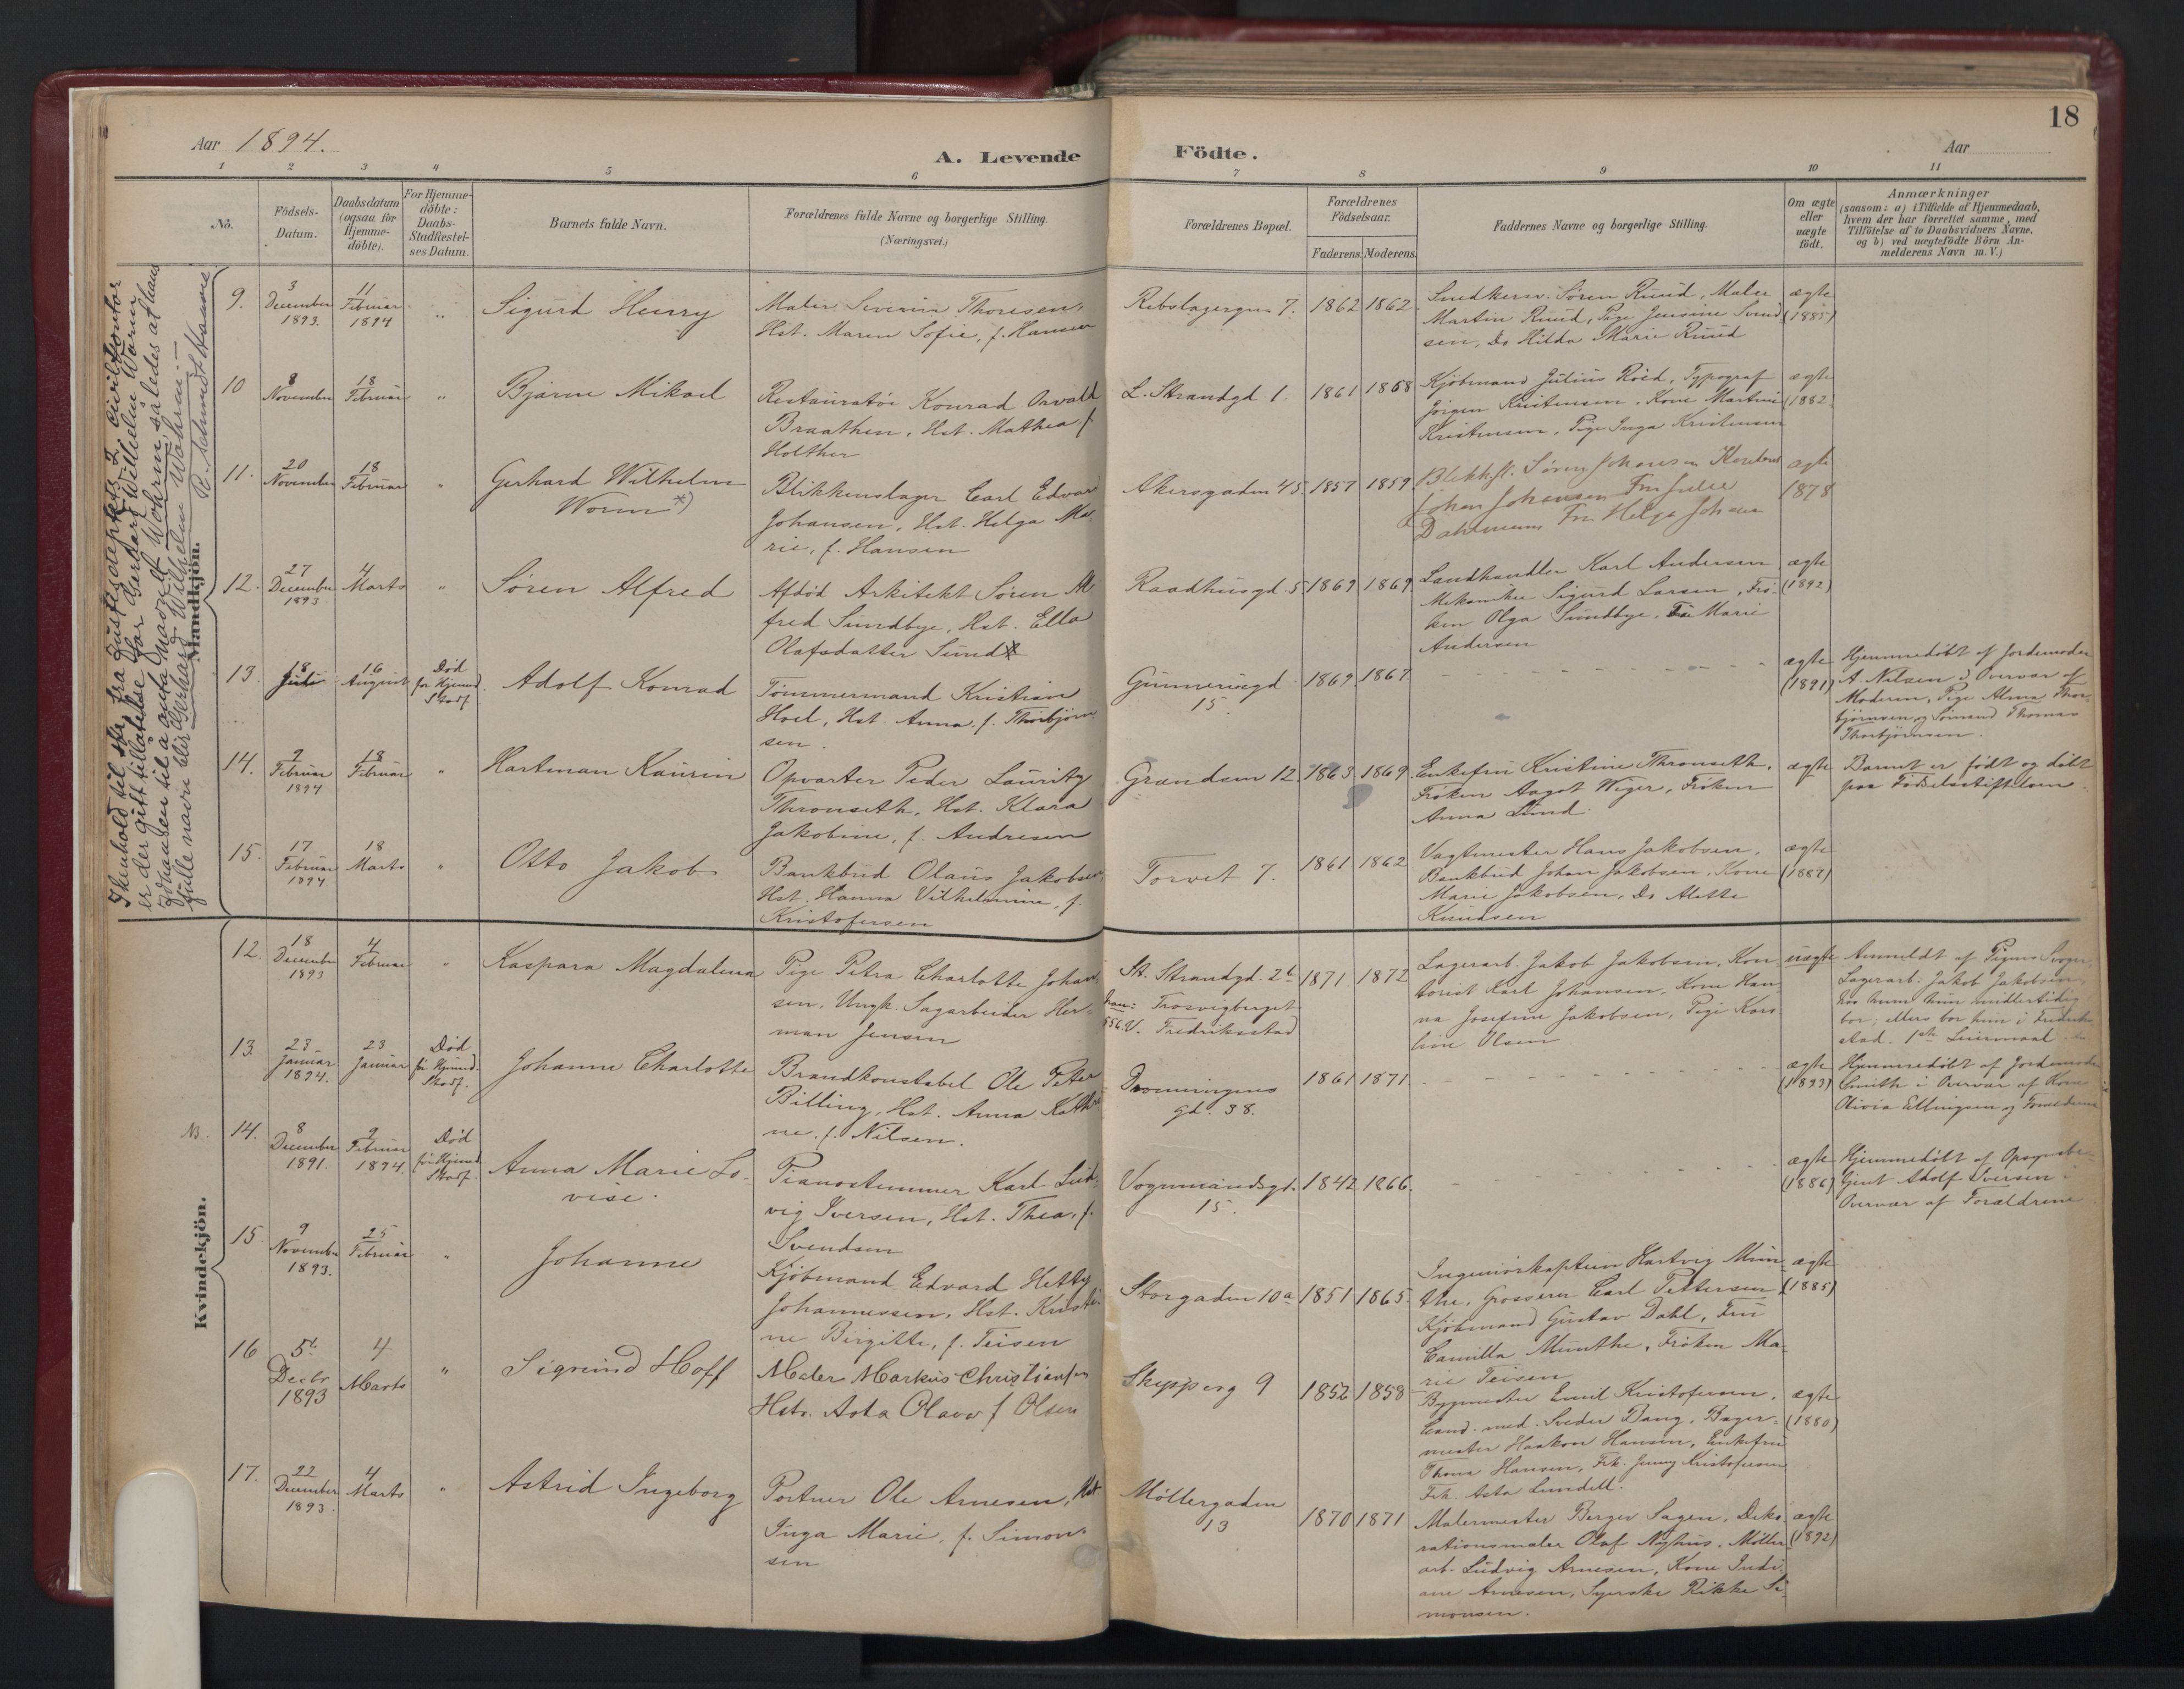 18
Aar 1894.
A. Levende Födte.
Aar
1 2 3 4 5 6 7 8 9 10 11
No.
Födsels-
Datum.
Daabsdatum
(ogsaa for
Hjemme-
döbte).
For Hjemme-
döbte:
Daabs-
Stadfæstel-
ses Datum.
Barnets fulde Navn.
Forældrenes fulde Navne og borgerlige Stilling.
(Næringsvei.)
Forældrenes Bopæl.
Forældrenes
Födselsaar.
Faderens. Moderens.
Faddernes Navne og borgerlige Stilling.
Om ægte
eller
uægte
födt.
Anmærkninger
(saasom: a) i Tilfælde af Hjemmedaab,
hvem der har forrettet samme, med
Tilföielse af to Daabsvidners Navne,
og b) ved uægtefödte Börn An-
melderens Navn m. V.)
Mandkjön.
I henhold til skr. fra Justisdeptets 2. civilkontor
er der gitt tillatelse for Gerhard Wilhelm Worm
Johansen til å anta navnet Wohrm således at hans
fulle navn blir Gerhard Wilhelm Wohrm.
R. Schmidt Hansen
9.
3
December
1893.
11
Februar
1894
"
Sigurd Henry
Maler Severin Thoresen,
Hst. Maren Sofie, f. Hansen
Rebslagergn. 7.
1862 1862
Snedkersv. Søren Ruud, Maler
Martin Ruud, Pige Jensine Svend
sen, Do Hilda Marie Ruud
ægte
(1885)
10
8
November
18
Februar
"
Bjarne Mikael
Restauratør Konrad Osvald
Braathen, Hst. Mathea f.
Holther
L. Strandgd. 1.
1861 1868
Kjøbmand Julius Röed, Typograf
Jørgen Kristensen, Kone Martine
Kristensen, Pige Inga Kristensen
ægte
(1882
11.
20
November
18
Februar
"
Gerhard Wilhelm
Worm *)
Blikkenslager Carl Edvard
Johansen, Hst. Helga Ma-
rie, f. Hansen
Akersgaden 45
1857 1859
Blikksl. Søren Johansen
Johan Johansen Fru Julie
Fru Helga Johansen
ægte
1878
12.
27
December
1893
4
Marts
"
Søren Alfred
Afdöd Arkitekt Søren Al
fred Sundbye, Hst. Ella
Olafsdatter Sundt
Raadhusgd. 5
1869 1869
Landhandler Karl Andersen
Mekaniker Sigurd Larsen, Frö-
ken Olga Sundbye, Fru Marie
Andersen
ægte
(1892)
13.
18
Juli
16
August
Død
før Hjemmed.
Stadf.
Adolf Konrad
Tømmermand Kristian
Hoel, Hst. Anna, f. Thorbjørn-
sen.
Gunnerusgd.
15
1869 1867
ægte
(1891)
Hjemmedøbt af Jordemoder
A. Nilsen i Overvær af
Moderen, Pige Alma Thor-
bjørnsen og Sömand Thomas
Thorbjörnsen.
14.
2
Februar
1894
18
Februar
"
Hartman Kaurin
Opvarter Peder Lauritz
Thronseth, Hst. Klara
Jakobine, f. Andresen
Grændsen 12
1863 1869
Enkefru Kristine Thronseth,
Fröken Aagot Wiger, Fröken
Anna Lund.
ægte
Barnet er født og døbt
paa Fødselsstiftelsen.
15.
17
Februar
1894
18
Marts
"
Otto Jakob
Bankbud Olaus Jakobsen,
Hst. Hanna Vilhelmine, f.
Kristofersen
Torvet 7.
1861 1862
Vagtmester Hans Jakobsen,
Bankbud Johan Jakobsen, Kone
Marie Jakobsen, Do Alette
Knudsen
ægte
(1887)
Kvindekjön.
12.
18
December
1893
4
Februar
"
Kaspara Magdalena
Pige Petra Charlotte Johan-
sen, Ungk. Sagarbeider Her-
man Jensen
St. Strandgd. 2b
Trosvigberget
Fredriksstad
1871 1872
Lagerarb. Jakob Jakobsen, Kon-
torist Karl Johansen, Kone Han
na Josefine Jakobsen, Pige Karo
line Olsen
uægte
Anmeldt af Pigens Svoger,
Lagerarb. Jakob Jakobsen,
hos hvem hun midlertidig
bor; ellers bor hun i Fredriks
stad. 1ste Leiermaal
13.
23
Januar
1894.
23
Januar
Død
før Hjemmed.
Stadf.
Johanne Charlotte
Brandkonstabel Ole Peter
Billing, Hst. Anna Kathri
ne, f. Nilsen.
Dronningens
gd. 38.
1861 1871
ægte
(1893)
Hjemmedøbt af Jordemoder
Smith i Overvær af Kone
Olivia Ellingsen og Forældrene
NB. 14.
8
December
1891.
2
Februar
1894.
Død
før Hjemmed
Stadf.
Anna Marie Lo-
vise.
Pianostemmer Karl Lud-
vig Iversen, Hst. Thea, f.
Svendsen
Vognmandsgd.
15.
1842 1866.
ægte
(1886)
Hjemmedøbt af Opsynsbe-
tjent Adolf Iversen i
Overvær af Forældrene
15
9
November
1893.
25
Februar
"
Johanne
Kjøbmand Edvard Hetty
Johannessen, Hst. Kristi-
ne Birgitte, f. Teisen
Storgaden 10a
1851 1865
Ingeniørkaptein Hartvig Mun-
the, Grosserer Carl Pettersen
Kjøbmand Gustav Dahl, Fru
Camilla Munthe, Frøken Ma-
rie Teisen
ægte
(1885)
16
5t
Decbr
1893
4
Marts
"
Sigrund Hoff
Maler Markus Christiansen
Hstr. Asta Olava f Olsen
Skipperg 9
1852 1858
Bygmester Emil Kristofersen,
Cand. med. Sveder Bang, Bager-
mester Haakon Hansen, Enkefru
Thona Hansen, Frk. Jenny Kristofersen
Frk. Asta Lundell.
ægte
(1880)
17.
22
December
1893.
4
Marts
"
Astrid Ingeborg
Portner Ole Arnesen, Hst
Inga Marie, f. Simon-
sen
Møllergaden
13
1870 1871
Malermester Berger Sagen, Deko
rationsmaler Olaf Nyhus, Møller
arb. Ludvig Arnesen, Kone Indi
ane Arnesen, Syerske Rikke Si-
monsen.
ægte
(1892)